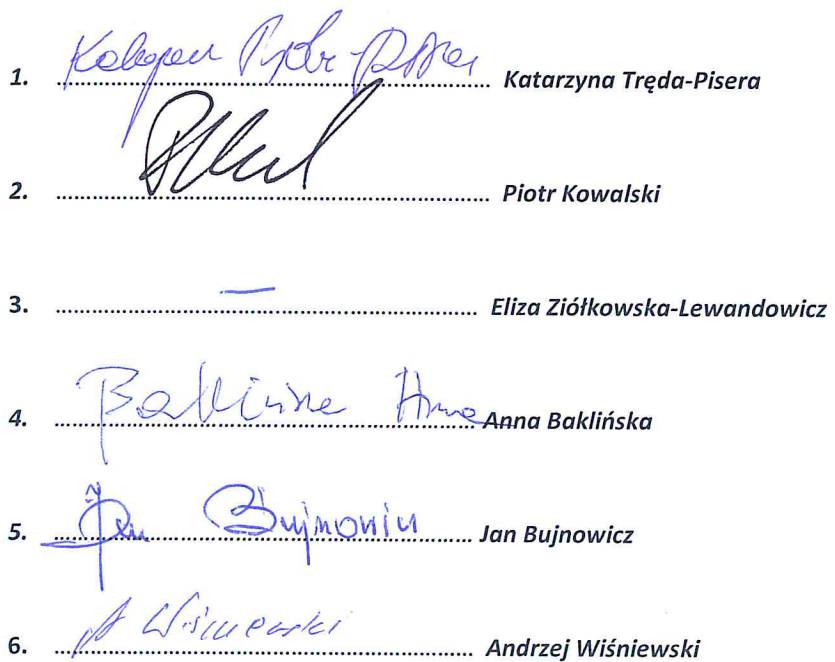 1. .......... Katarzyna Tręda-Pisera
2. .......... Piotr Kowalski
3. – .......... Eliza Ziółkowska-Lewandowicz
4. Baklińska Anna .......... Anna Baklińska
5. Jan Bujnowicz .......... Jan Bujnowicz
6. A Wiśniewski .......... Andrzej Wiśniewski